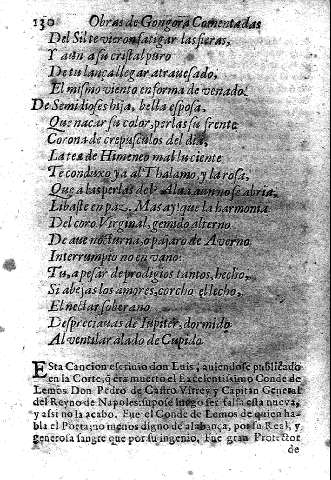 130 Obras de Gongora Comentadas
Del Sil te vieron fatigar las fieras,
Y aun a su cristal puro
De tu lança llegar atrauesado,
El mismo viento en forma de venado.
De Semidioses hija, bella esposa,
Que nacar su color, perlas su frente
Corona de crepusculos del dia,
La tea de Himeneo mal luciente
Te conduxo ya al Thalamo, y la rosa,
Que a las perlas del Alua aun no se abria,
Libaste en paz. Mas ay! que la harmonia
Del coro Virginal, gemido alterno
De aue nocturna, o pajaro de Auerno
Interrumpio no en vano:
Tu, a pesar de prodigios tantos, hecho,
Si abejas los amores, corcho el lecho,
El nectar soberano
Despreciauas de Iupiter, dormido
Al ventilar alado de Cupido.
ESta Cancion escriuio don Luis, auiendose publicado
en la Corte, q̃ era muerto el Excelentissimo Conde de
Lemos Don Pedro de Castro Virrey y Capitan General
del Reyno de Napoles: supose luego ser falsa esta nueua,
y assi no la acabo. Fue el Conde de Lemos de quien ha-
bla el Poeta; no menos digno de alabança, por su Real, y
generosa sangre que por su ingenio. Fue gran Protector
de